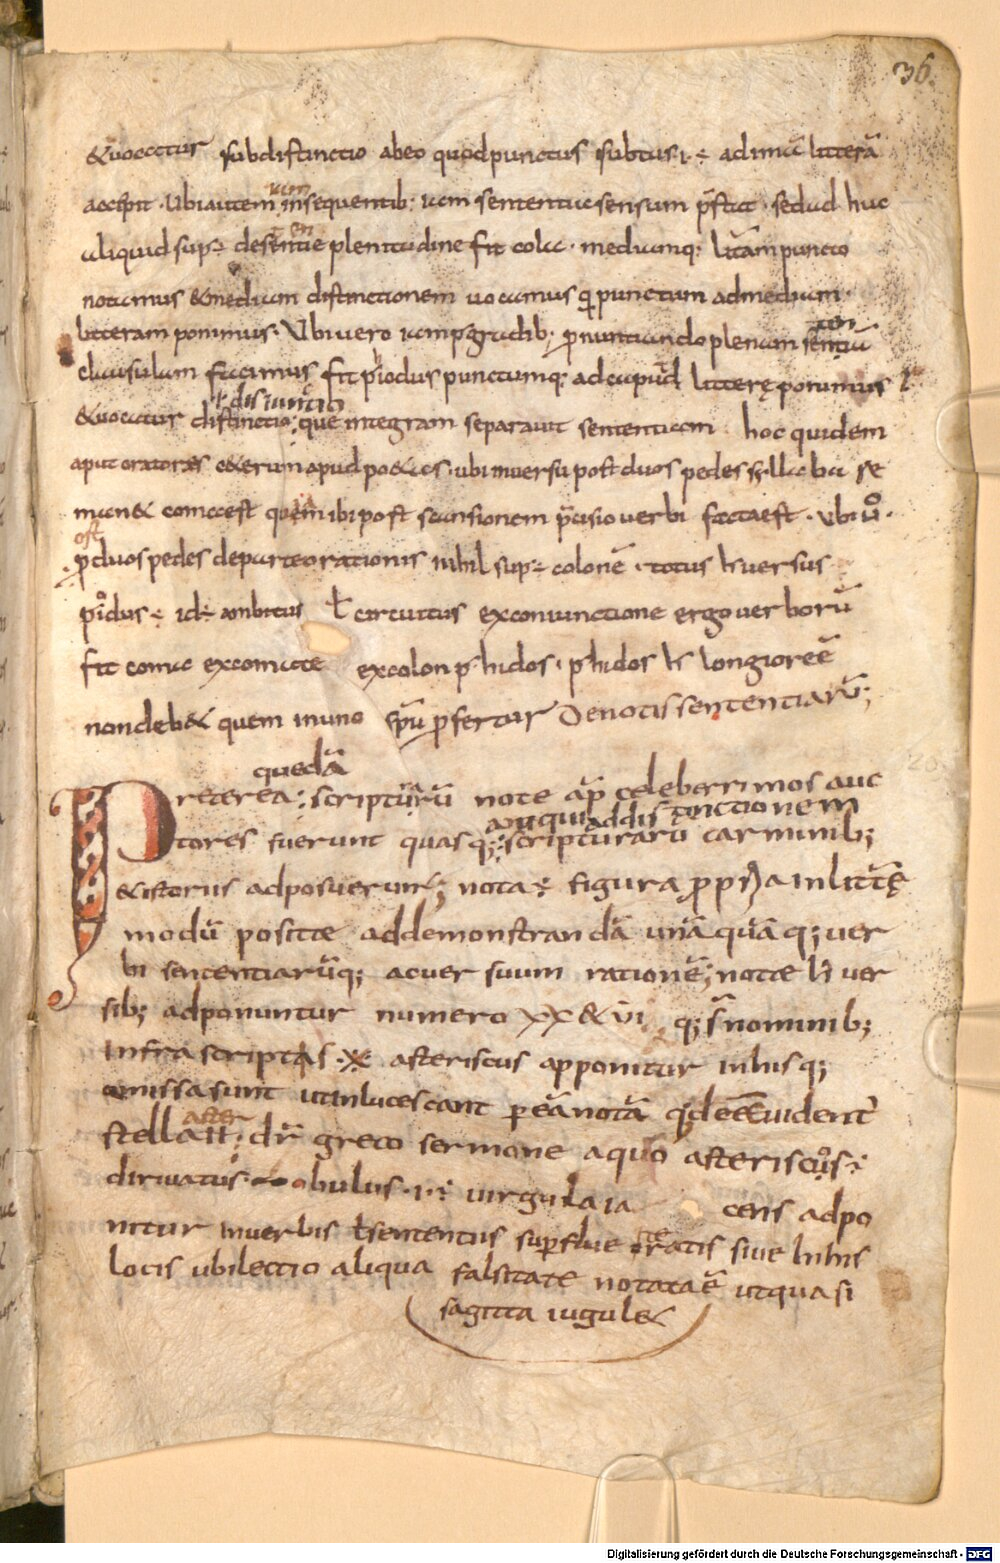 36.
&uocatur subdistinctio abeo quod punctus subtus .i. ÷ ad imā litterā
accipit · Ubi autem in sequentib; iam sententia sensum p̄stat · sed ad huc
aliquid sup÷ de sententiae plenitudine fit cola · mediamq; litt̄am puncto
notamus & mediam distinctionem uocamus q̇ punctum ad mediam
litteram ponimus · Ubi uero iam p gradib; pnuntiando plenam sentiā
clausulam facimus fit piodus punctumq; ad caput litterę ponimus
&uocatur distinctio; ł disiunctio que integram separauit sententiam · hoc quidem
aput oratores c&erum apud po&as · ubi in uersu post duos pedes syllaba re
man& coma est quia ibi post scansionem p̄cisio uerbi facta est · Ubi ů ·
p duos pedes de parte orationis nihil sup÷ colon ē · totus h uersus
piodus ÷ id ÷ ambitus ł circuitus ex coniunctione ergo uerborū
fit coma ex comate ex colon p hidos · p hidos h longiore ē
non deb& quem in uno spū pfertur De notis sententiarū;
quedā
Preterea; scripturarū note ap̄ celeberrimos auc
antiqui ad distinctionem
tores fuerunt quas q; scripturarū carminib;
& istoriis adposuerunt; nota ÷ figura ppria in litterę
modū posita ad demonstrandā unā quāq; uer
bi sententiarūq; ac uersuum rationē; notae h uer
sib; adponuntur numero xx & vi q; s̄ nominib;
infra scriptas · ※ asteriscus apponitur in his q;
omissa sunt ut inlucescant p eā notā q̇ deeē uident̄
aster
stella .n̄.; dr̄ greco sermone a quo asteriscus ÷
diriuatus — obulus · .i. ÷ uirgula ia cens adpo
nitur in uerbis ł sententiis supflue iteratis siue in his
locis ubi lectio aliqua falsitate notata ē ut quasi
sagitta iugul&
Digitalisierung gefördert durch die Deutsche Forschungsgemeinschaft - DFG